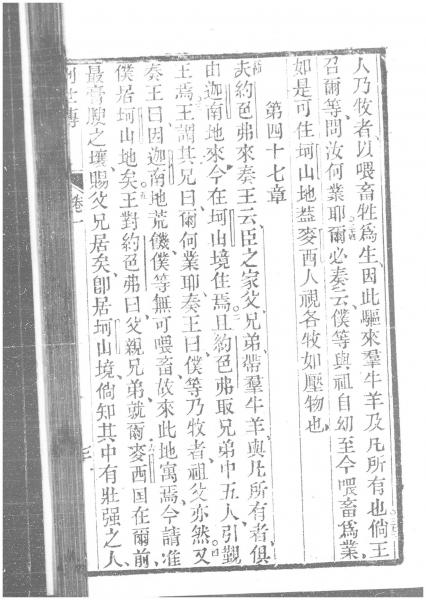 人乃牧者以喂畜牲爲生因此驅來羣牛羊及凡所有也倘王
召爾等問汝何業耶爾必奏云僕等與祖自幼至今喂畜爲業
如是可住坷山地葢麥西人視各牧如壓物也
第四十七章
夫約色弗來奏王云臣之家父兄弟帶羣牛羊與凡所有者俱
由迦南地來今在坷山境住焉且約色弗取兄弟中五人引覲
王焉王謂其兄曰爾何業耶奏王曰僕等乃牧者祖父亦然又
奏王曰因迦南地荒饑僕等無可喂畜故來此地寓焉今請准
僕居坷山地矣王對約色弗曰父親兄弟就爾麥西国在爾前
最膏腴之壤賜父兄居矣卽居坷山境倘知其中有壯强之人
卷一